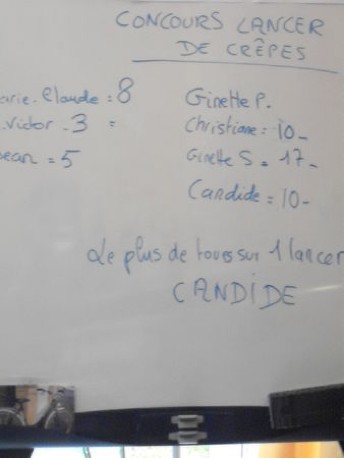 CONCOURS LANCER
DE CRÊPES
arie. Claude : 8
.Victor . 3 =
ean = 5
Ginette P.
Christiane = 10 -
Ginette S = 17 -
Candide = 10 -
Le plus de tours sur 1 lancer
CANDIDE